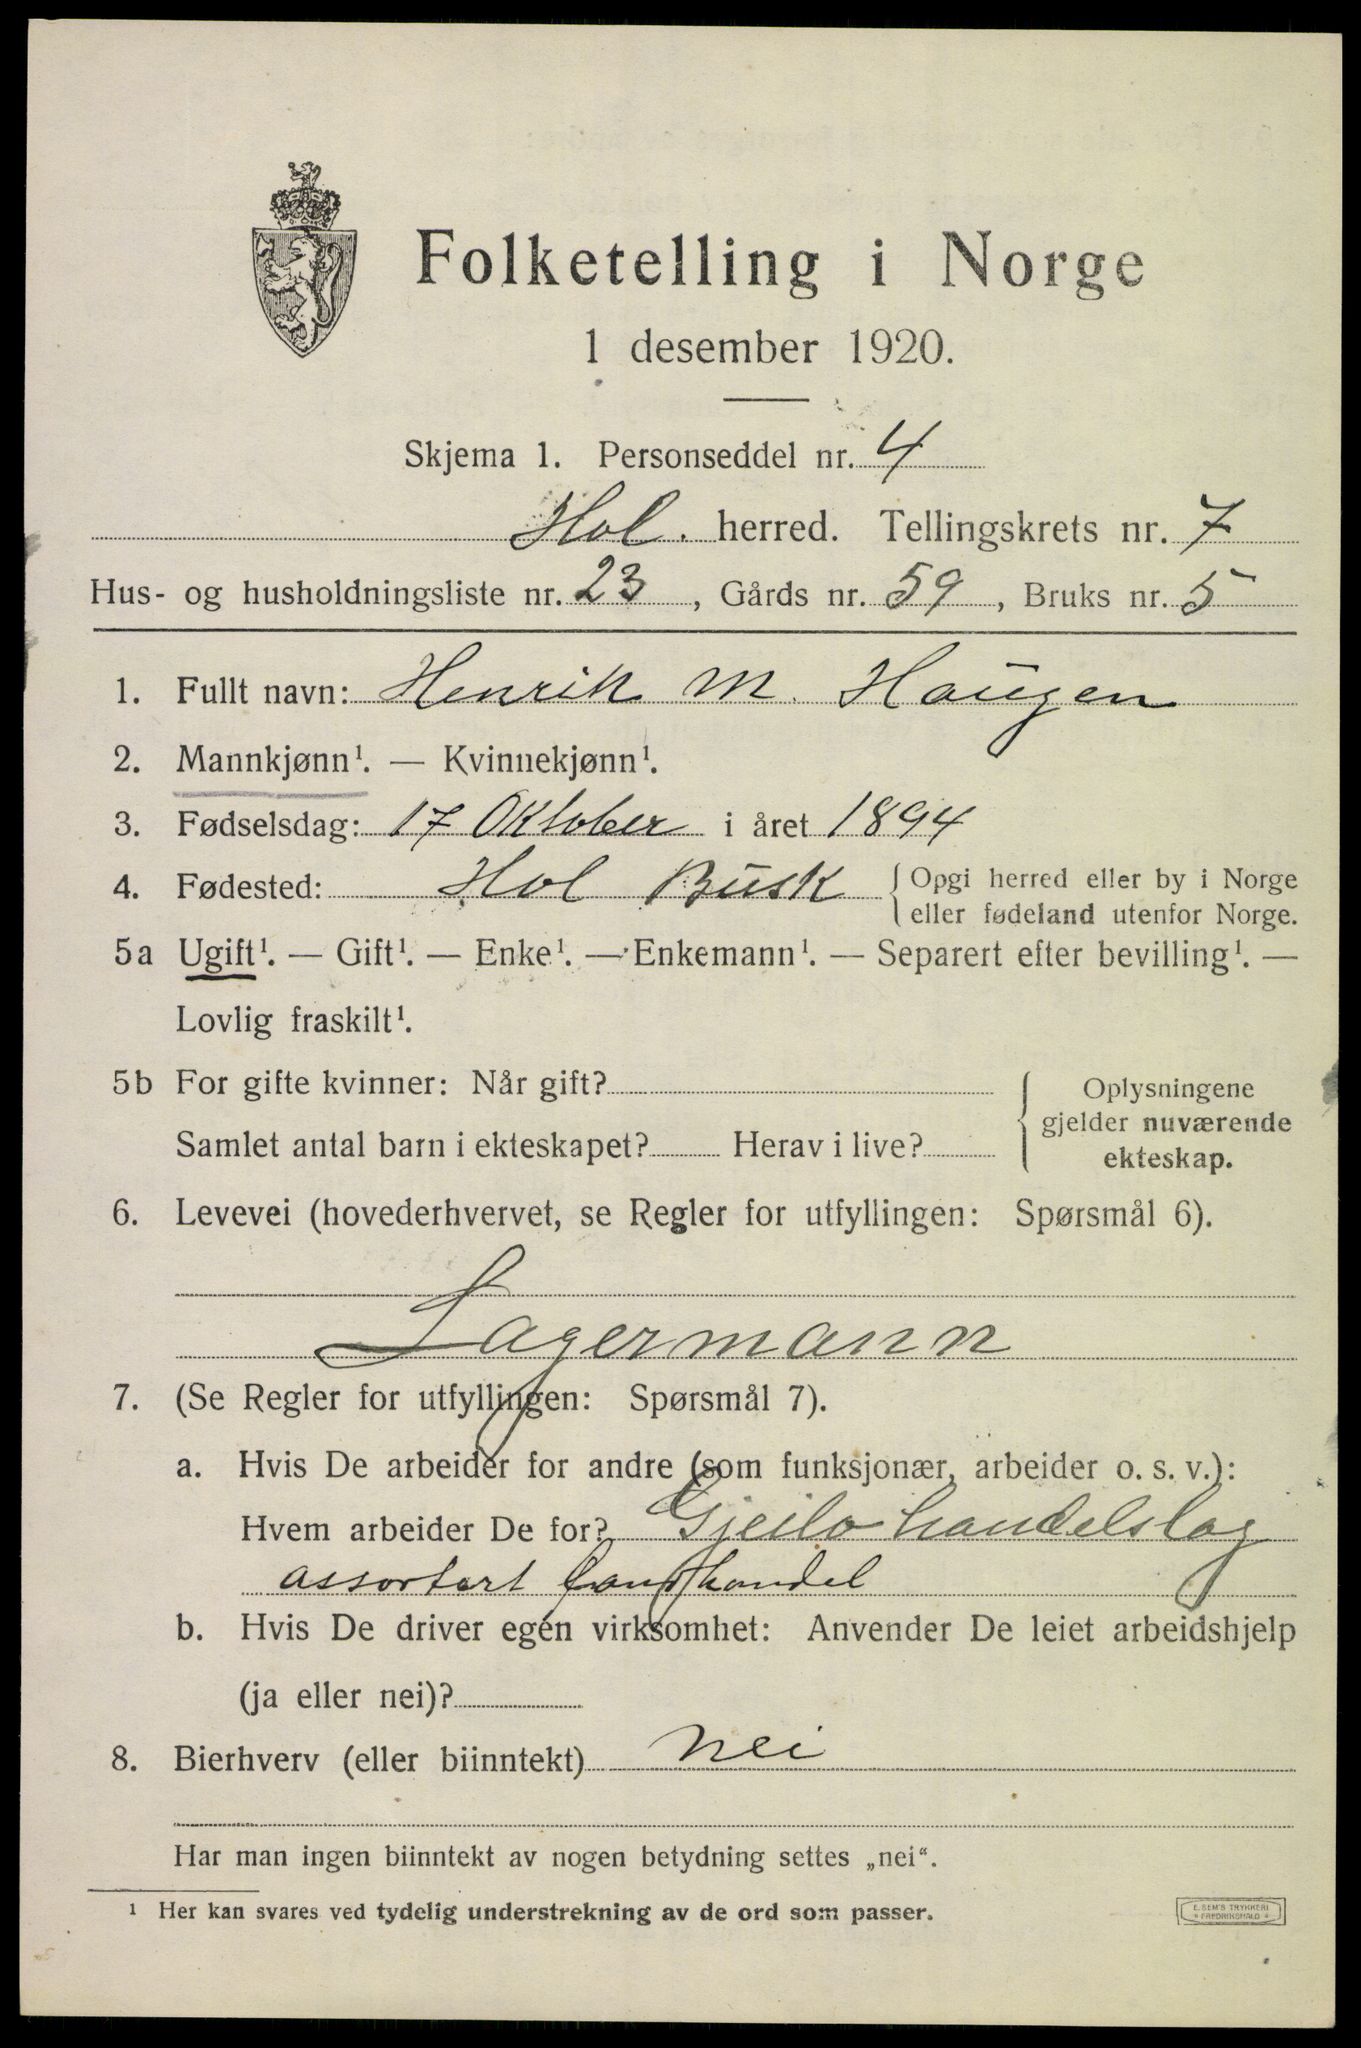 Folketelling i Norge
1 desember 1920.
Skjema 1. Personseddel nr. 4
Hol. herred. Tellingskrets nr. 7
Hus- og husholdningsliste nr. 23, Gårds nr. 59, Bruks nr. 5
1. Fullt navn: Henrik M. Haugen
2. Mannkjønn¹. — Kvinnekjønn¹.
3. Fødselsdag: 17 Oktober i året 1894
4. Fødested: Hol Busk { Opgi herred eller by i Norge
eller fødeland utenfor Norge.
5a Ugift¹. — Gift¹. — Enke¹. — Enkemann¹. — Separert efter bevilling¹. —
Lovlig fraskilt¹.
5b For gifte kvinner: Når gift?
Samlet antal barn i ekteskapet? Herav i live?
{ Oplysningene
gjelder nuværende
ekteskap.
6. Levevei (hovederhvervet, se Regler for utfyllingen: Spørsmål 6).
Lagermann
7. (Se Regler for utfyllingen: Spørsmål 7).
a. Hvis De arbeider for andre (som funksjonær, arbeider o. s. v.):
Hvem arbeider De for? Gjeilo handelslag
assortert landhandel
b. Hvis De driver egen virksomhet: Anvender De leiet arbeidshjelp
(ja eller nei)?
8. Bierhverv (eller biinntekt) nei
Har man ingen biinntekt av nogen betydning settes „nei“.
¹ Her kan svares ved tydelig understrekning av de ord som passer.
E. SEM'S TRYKKERI
* FREDRIKSHALD *